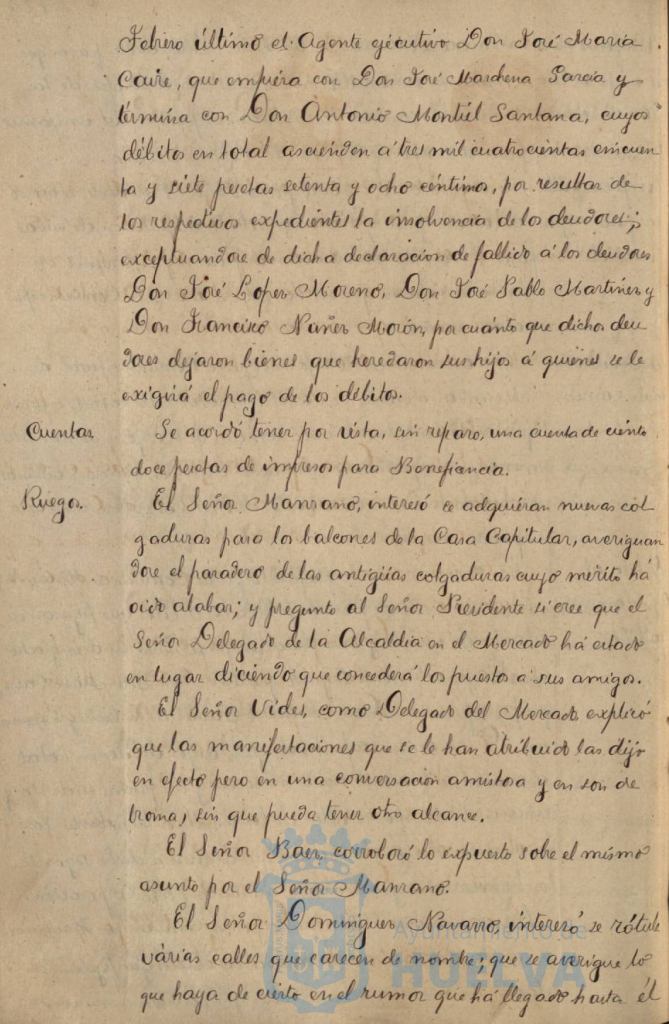 Febrero último el Agente ejecutivo Don José María
Caire, que empiéza con Don José Marchena García y
términa con Don Antonio Montiel Santana, cuyos
débitos en total ascienden á tres mil cuatrocientas cincuen
ta y siete pesetas setenta y ocho céntimos, por resultar de
los respectivos expedientes la insolvencia de los deudores;
exceptuandose de dicha declaración de fallido á los deudores
Don José López Moreno, Don José Pablo Martínez y
Don Francisco Núñez Morón, por cuánto que dichos deu
dores dejaron biénes que heredaron sus hijos á quiénes se le
exigirá el pago de los débitos.
Cuentas. Se acordó tener por vista, sin reparo, una cuenta de ciento
doce pesetas de impresos para Beneficencia.
Ruegos. El Señor Manzano, interesó se adquiéran nuevas col
gaduras para los balcones de la Casa Capitular, averiguan
dose el paradero de las antigüas colgaduras cuyo mérito há
oido alabar; y pregunto al Señor Presidente si cree que el
Señor Delegado de la Alcaldía en el Mercado há estado
en lugar diciendo que concederá los puestos á sus amigos.
El Señor Vides, como Delegado del Mercado explicó
que las manifestaciones que se le han atribuido las dijo
en efecto pero en una conversación amistosa y en son de
broma, sin que pueda tener otro alcance.
El Señor Baez, corroboró lo expuesto sobre el mismo
asunto por el Señor Manzano.
El Señor Domínguez Navarro, interesó se rótule
várias calles que carecen de nombre; que se averigue lo
que haya de ciérto en el rumor que há llegado hasta él
Ayuntamiento de
HUELVA